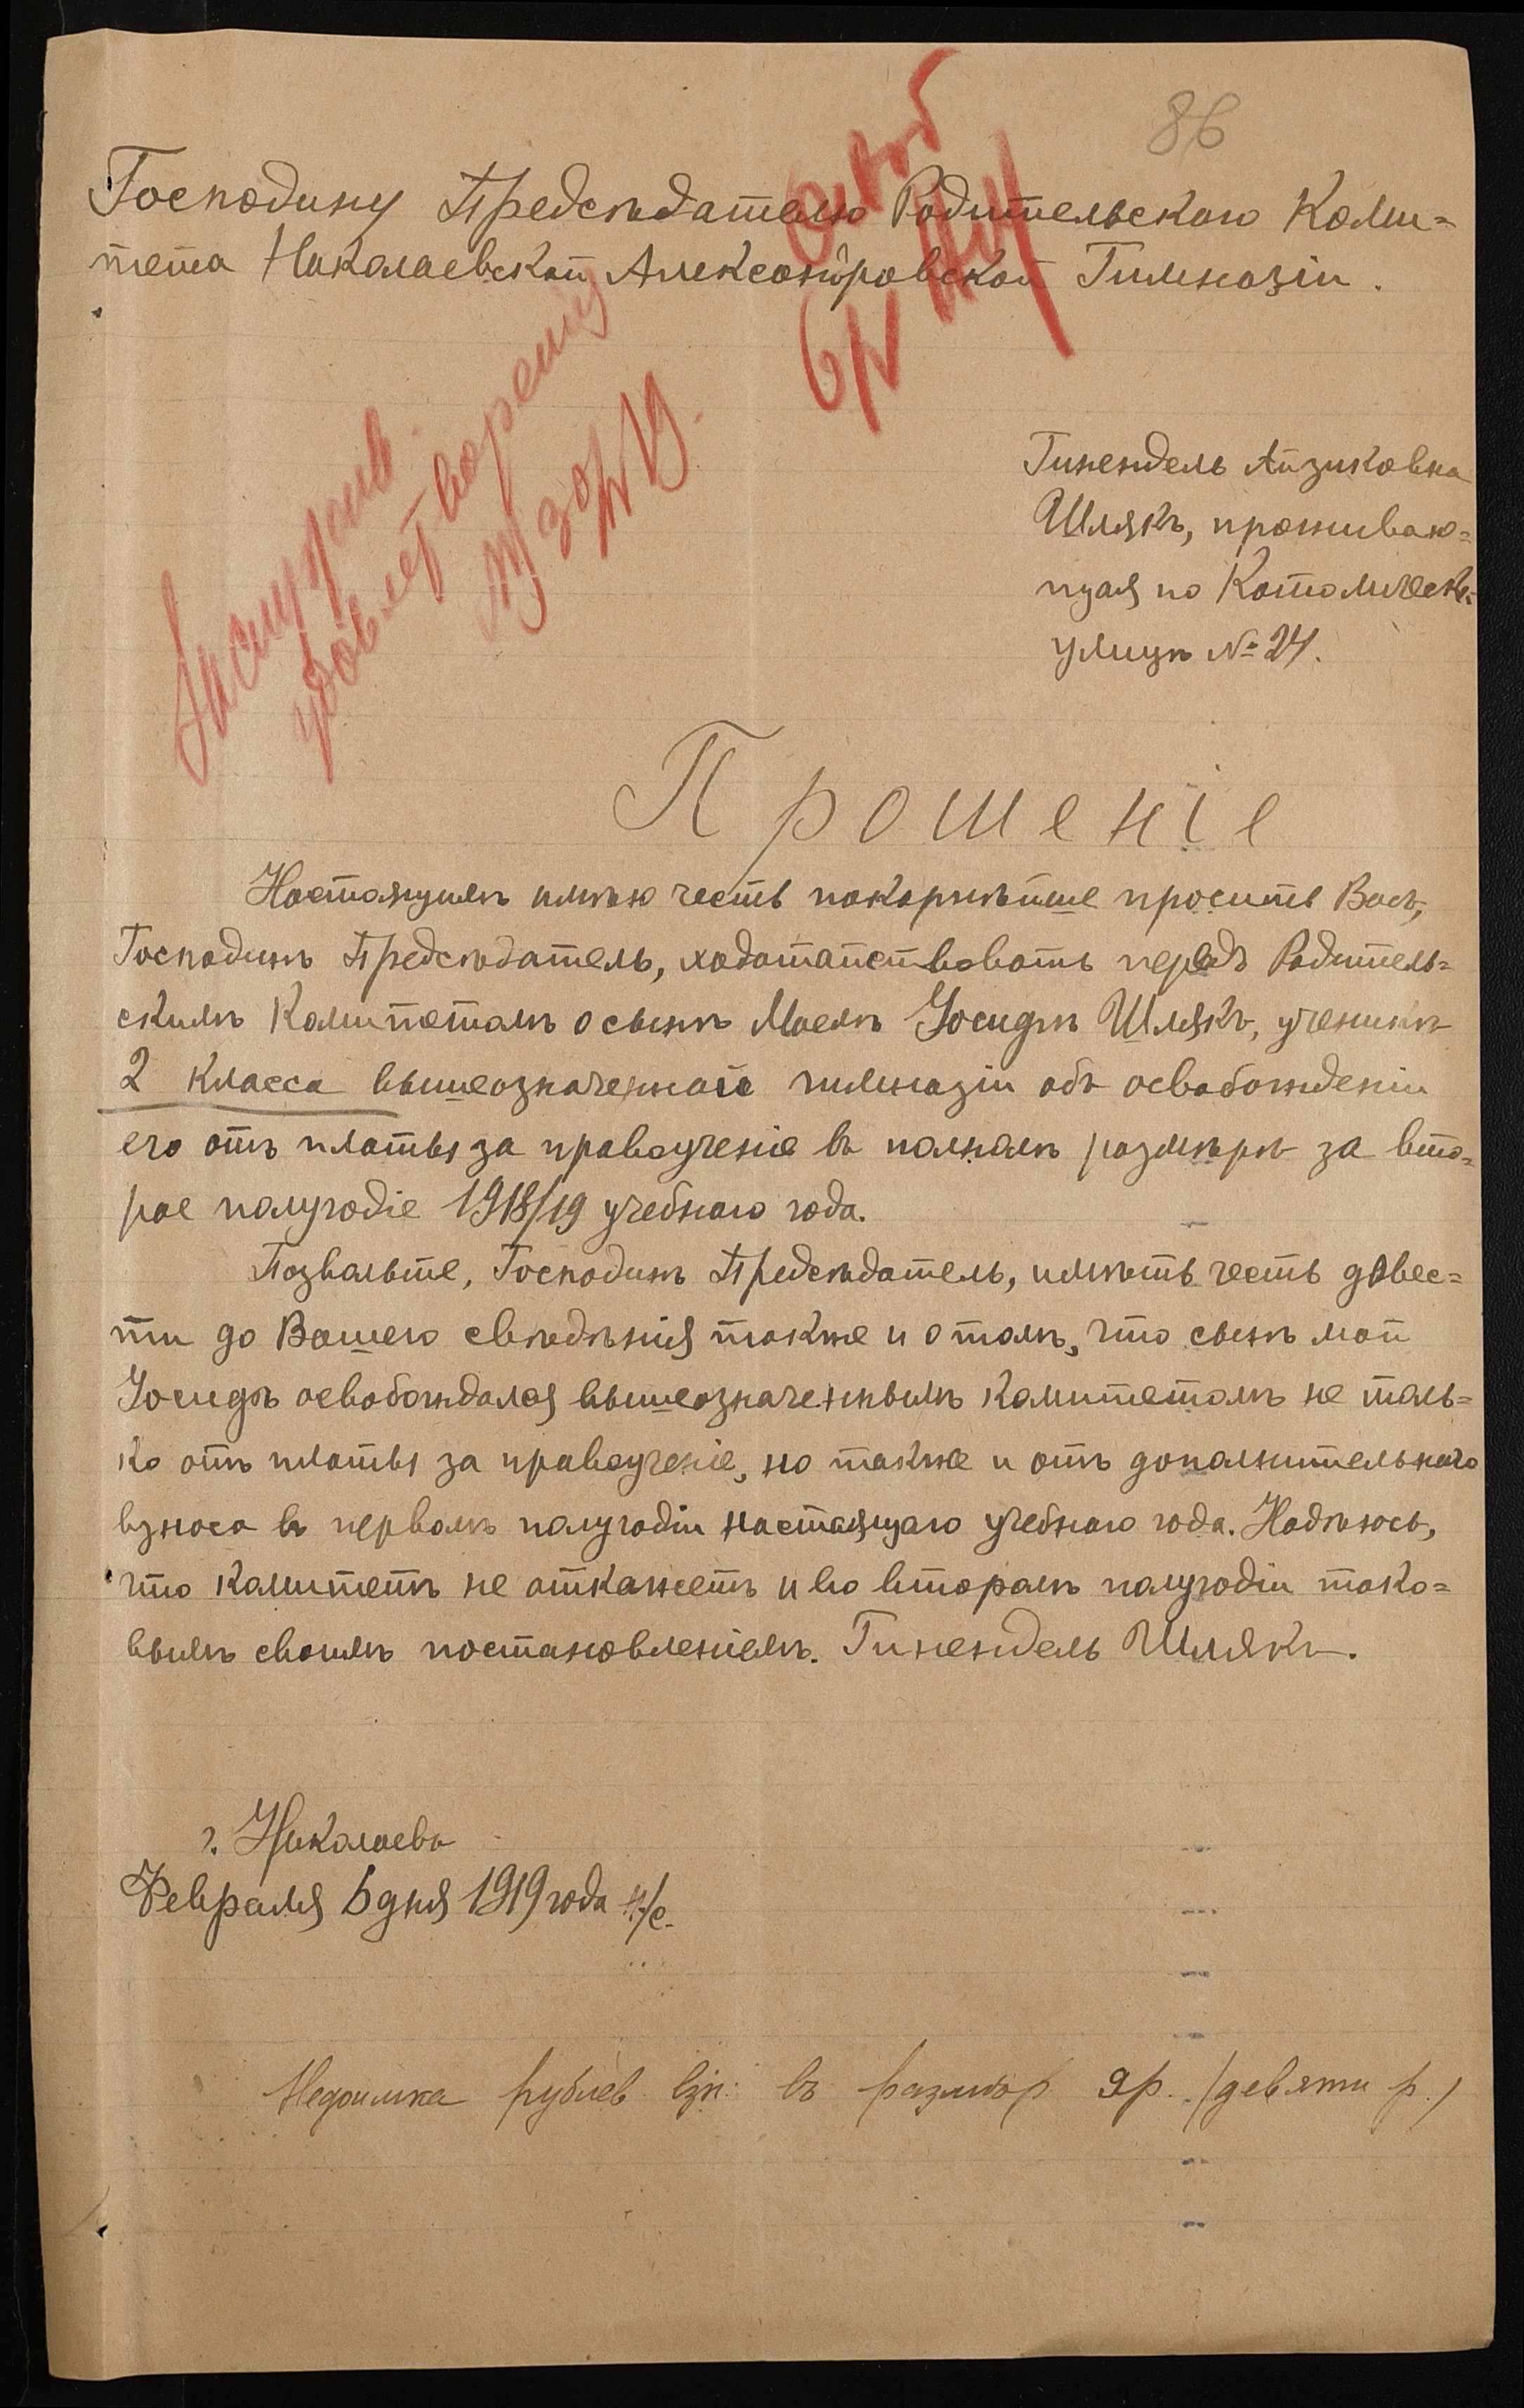 86
Господину Предсѣдателю Родительскаго Коми=
тета Николаевской Александровской Гимназіи.
Гинендель Айзиковна
Шлякъ, проживаю=
щая по Католическ.
улицѣ № 24.
удовлетворенiя
Прошеніе
Настоящимъ имѣю честь покорнѣйше просить Васъ,
Господинъ Предсѣдатель, ходатайствовать передъ Родитель=
скимъ Комитетомъ о сынѣ Моемъ Іосифѣ Шлякъ, ученикѣ
2 класса вышеозначенной гимназіи объ освобожденіи
его отъ платы за правоученіе въ полномъ размѣрѣ за вто=
рое полугодіе 1918/19 учебнаго года.
Позвольте, Господинъ Предсѣдатель, имѣть честь довес=
ти до Вашего свѣдѣнія также и о томъ, что сынъ мой
Іосифъ освобождался вышеозначеннымъ Комитетомъ не толь=
ко отъ платы за правоученіе, но также и отъ дополнительнаго
взноса въ первомъ полугодіи настоящаго учебнаго года. Надѣюсь,
что комитетъ не откажетъ и во второмъ полугодіи тако=
вымъ своимъ постановленіемъ. Гинендель Шлякъ.
г. Николаевъ
Февраля 6 дня 1919 года н/с.
Недоимка рублев взн. въ размѣр 9 р. (девяти р.)